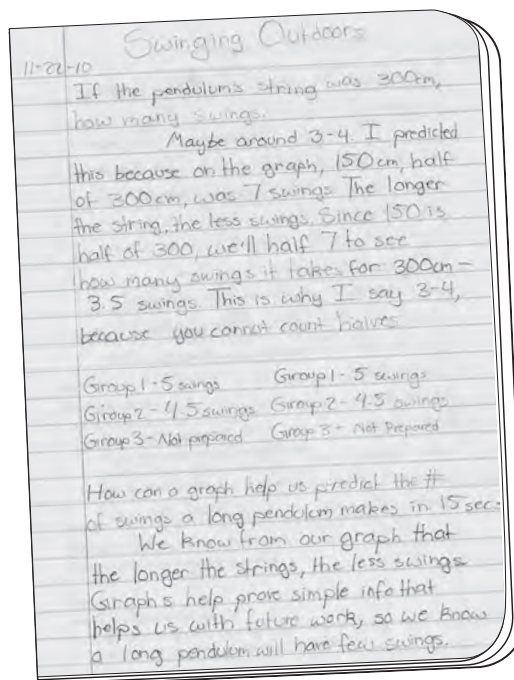 Swinging Outdoors
11-22-10
If the pendulum's string was 300cm,
how many swings.
Maybe around 3-4. I predicted
this because on the graph, 150cm, half
of 300cm, was 7 swings. The longer
the string, the less swings. Since 150 is
half of 300, we'll half 7 to see
how many swings it takes for 300cm -
3.5 swings. This is why I say 3-4,
because you cannot count halves
Group 1 - 5 swings Group 1 - 5 swings
Group 2 - 4.5 swings Group 2 - 4.5 swings
Group 3 - Not prepared Group 3 - Not Prepared
How can a graph help us predict the #
of swings a long pendulum makes in 15 sec.
We know from our graph that
the longer the strings, the less swings.
Graphs help prove simple info that
helps us with future work, so we know
a long pendulum will have few swings.